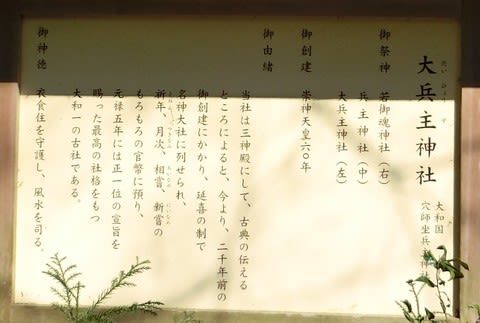 大兵主神社
だいひょうず
大和国
穴師坐兵主神社
御祭神 若御魂神社（右）
兵主神社（中）
大兵主神社（左）
御創建 崇神天皇六〇年
御由緒
当社は三神殿にして、古典の伝える
ところによると、今より、二千年前の
御創建にかかり、延喜の制で
名神大社に列せられ、
祈年、月次、相嘗、新嘗の
もろもろの官幣に預り、
元禄五年には正一位の宣旨を
賜った最高の社格をもつ
大和一の古社である。
御神徳 衣食住を守護し、風水を司る。